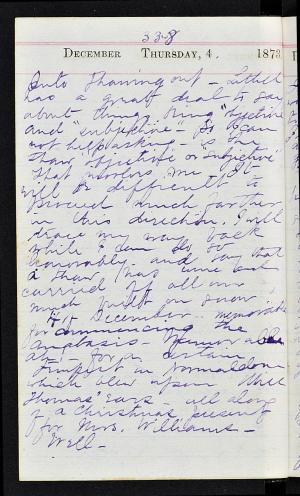 338
DECEMBER THURSDAY, 4. 1873
thawing out -
has a great deal to say
about things being "objective"
and "subjective" - so I can
not help asking - is the
thaw "objective" or subjective"
that
will be difficult to
proceed much further
in this direction. I will
trace my way back
while I can do so
honorably. and say that
a thaw has come and
carried off all our
much snow -
4th December. memorable
for commencing the
- for a certain
trumpet
which blew upon
Thomas' Ears - all along
of a Christmas present
for Mrs. Williams -
Well -